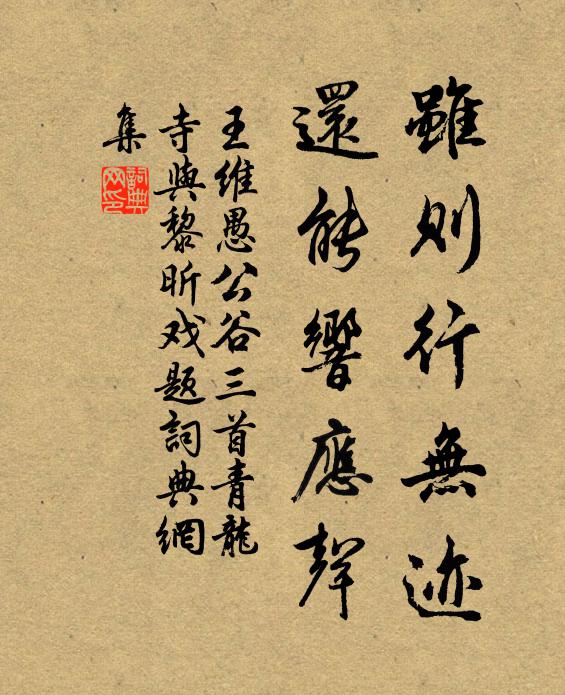 雖則行無迹
還能響應聲
王維愚公谷三首青龍
寺與黎昕戏题詞典網
集
詞典
网印